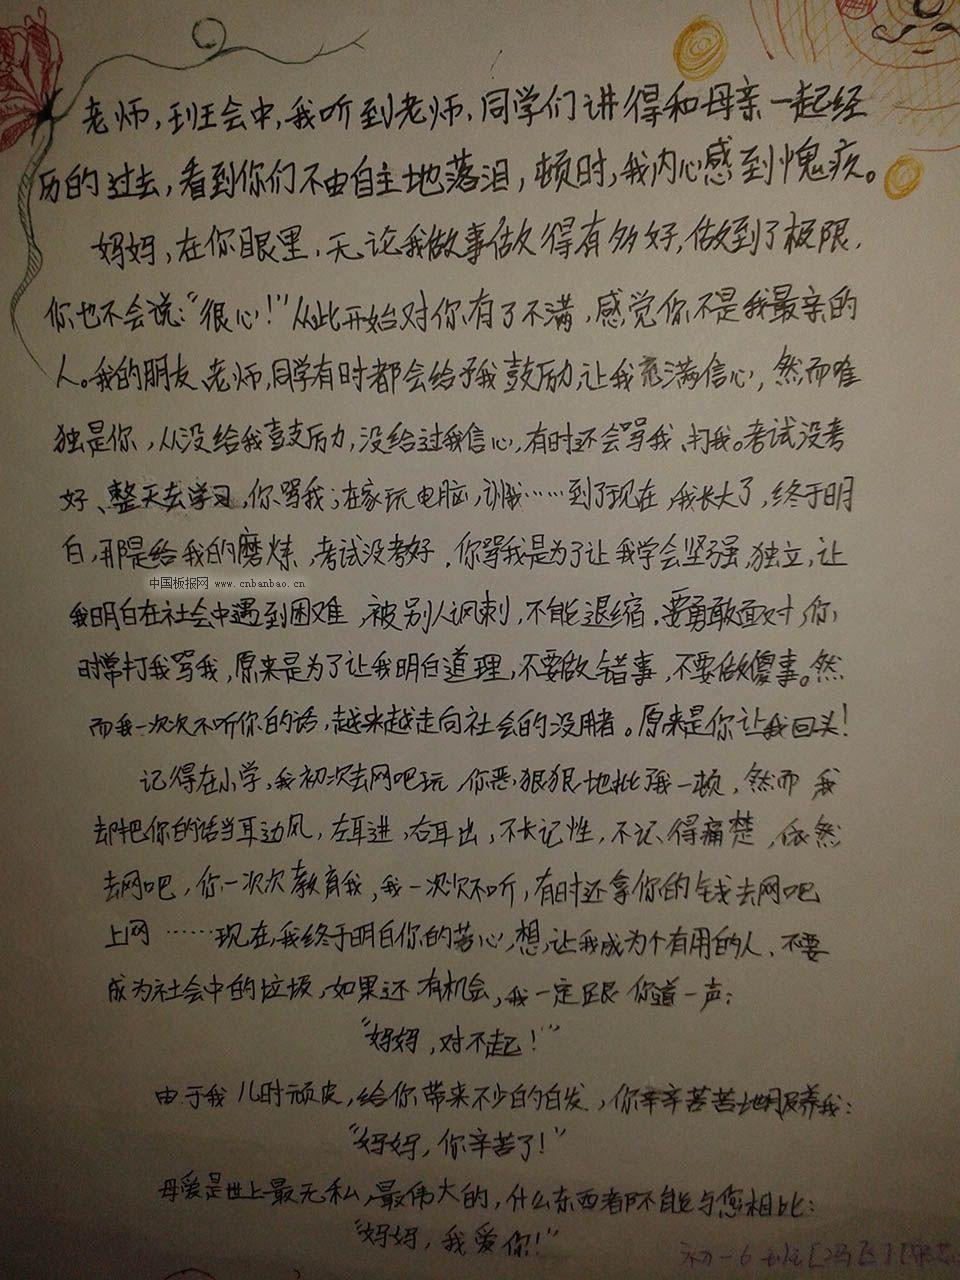 老师,班会中,我听到老师,同学们讲得和母亲一起经
历的过去,看到你们不由自主地落泪,顿时,我内心感到愧疚。
妈妈,在你眼里,无论我做事做得有多好,做到了极限,
你也不会说:“很心!”从此开始对你有了不满,感觉你不是我最亲的
人。我的朋友、老师,同学有时都会给予我鼓励,让我充满信心,然而唯
独是你,从没给我鼓励,没给过我信心,有时还会骂我、打我。考试没考
好、整天去学习,你骂我;在家玩电脑,训我……到了现在,我长大了,终于明
白,那是给我的磨炼,考试没考好,你骂我是为了让我学会坚强,独立,让
中国板报网 www.cnbanbao.cn
我明白在社会中遇到困难,被别人讽刺,不能退缩,要勇敢面对,你
时常打我骂我,原来是为了让我明白道理,不要做错事,不要做傻事。然
而我一次次不听你的话,越来越走向社会的没用者。原来是你让我回头!
记得在小学,我初次去网吧玩,你恶狠狠地批我一顿,然而我
却把你的话当耳边风,左耳进,右耳出,不长记性,不记得痛楚,依然
去网吧,你一次次教育我,我一次次不听,有时还拿你的钱去网吧
上网……现在,我终于明白你的苦心,想让我成为个有用的人、不要
成为社会中的垃圾,如果还有机会,我一定跟你道一声:
“妈妈,对不起!”
由于我儿时顽皮,给你带来不少的白发,你辛辛苦苦地抚养我:
“妈妈,你辛苦了!”
母爱是世上最无私,最伟大的,什么东西都不能与您相比:
“妈妈,我爱你!”
初一6班